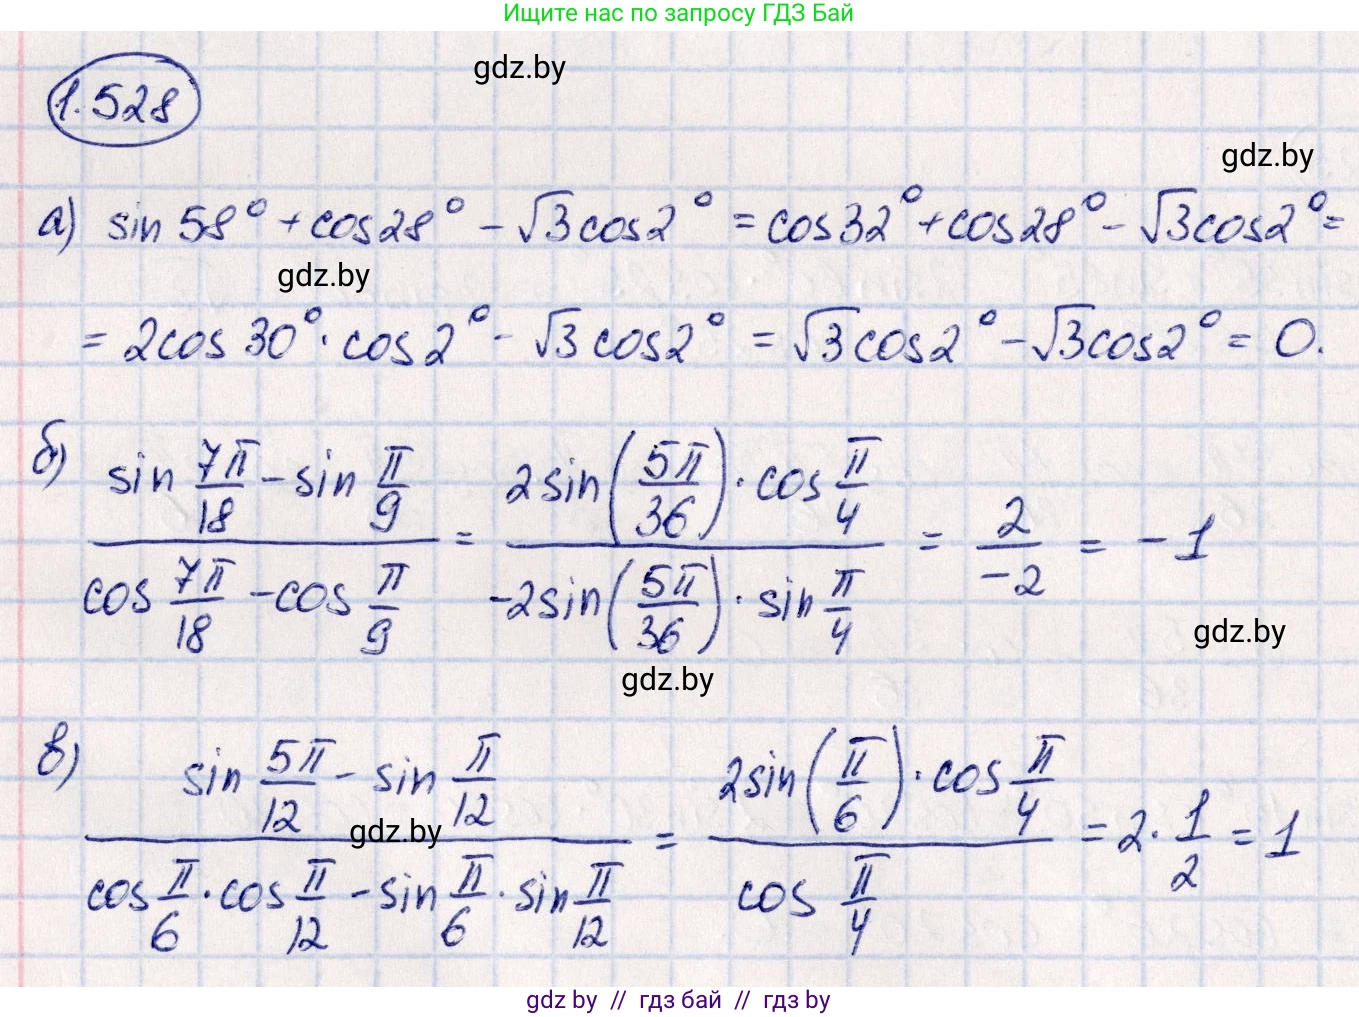 Ищите нас по запросу ГДЗ Бай
gdz.by
1.528
gdz.by
а) sin 58° + cos 28° - √3 cos 2° = cos 32° + cos 28° - √3 cos 2° =
gdz.by
= 2cos 30° · cos 2° - √3 cos 2° = √3 cos 2° - √3 cos 2° = 0.
б) (sin 7π/18 - sin π/9) / (cos 7π/18 - cos π/9) = (2 sin(5π/36) · cos π/4) / (-2 sin(5π/36) · sin π/4) = 2/-2 = -1
gdz.by
gdz.by
в) (sin 5π/12 - sin π/12) / (cos π/6 · cos π/12 - sin π/6 · sin π/12) = (2 sin(π/6) · cos π/4) / (cos π/4) = 2 · 1/2 = 1
gdz.by
gdz by // гдз бай // гдз by